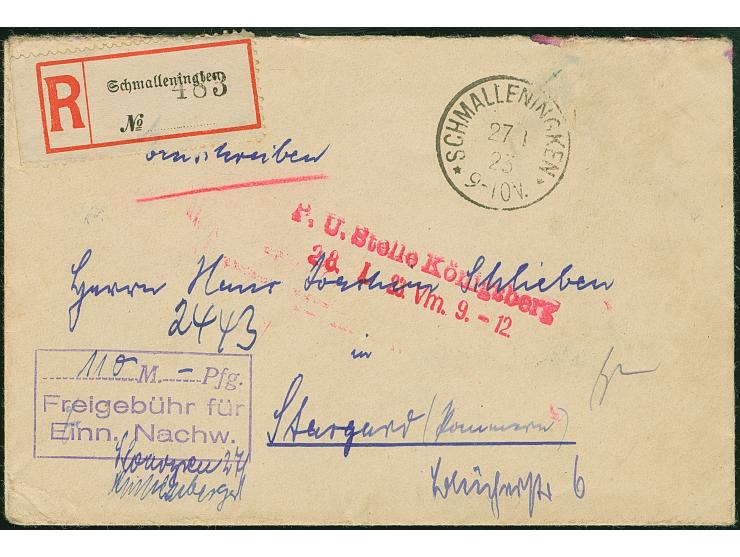 R Schmalleningken
483
№
Einschreiben
SCHMALLENINGKEN
27 1
23
9-10V.
P. U. Stelle Königsberg
28. 1. 23. Vm. 9.-12.
Herrn Hans Joachim Schlieben
2443
in
Stargard (Pommern)
Blücherstr 6
110 M. - Pfg.
Freigebühr für
Einn. Nachw.